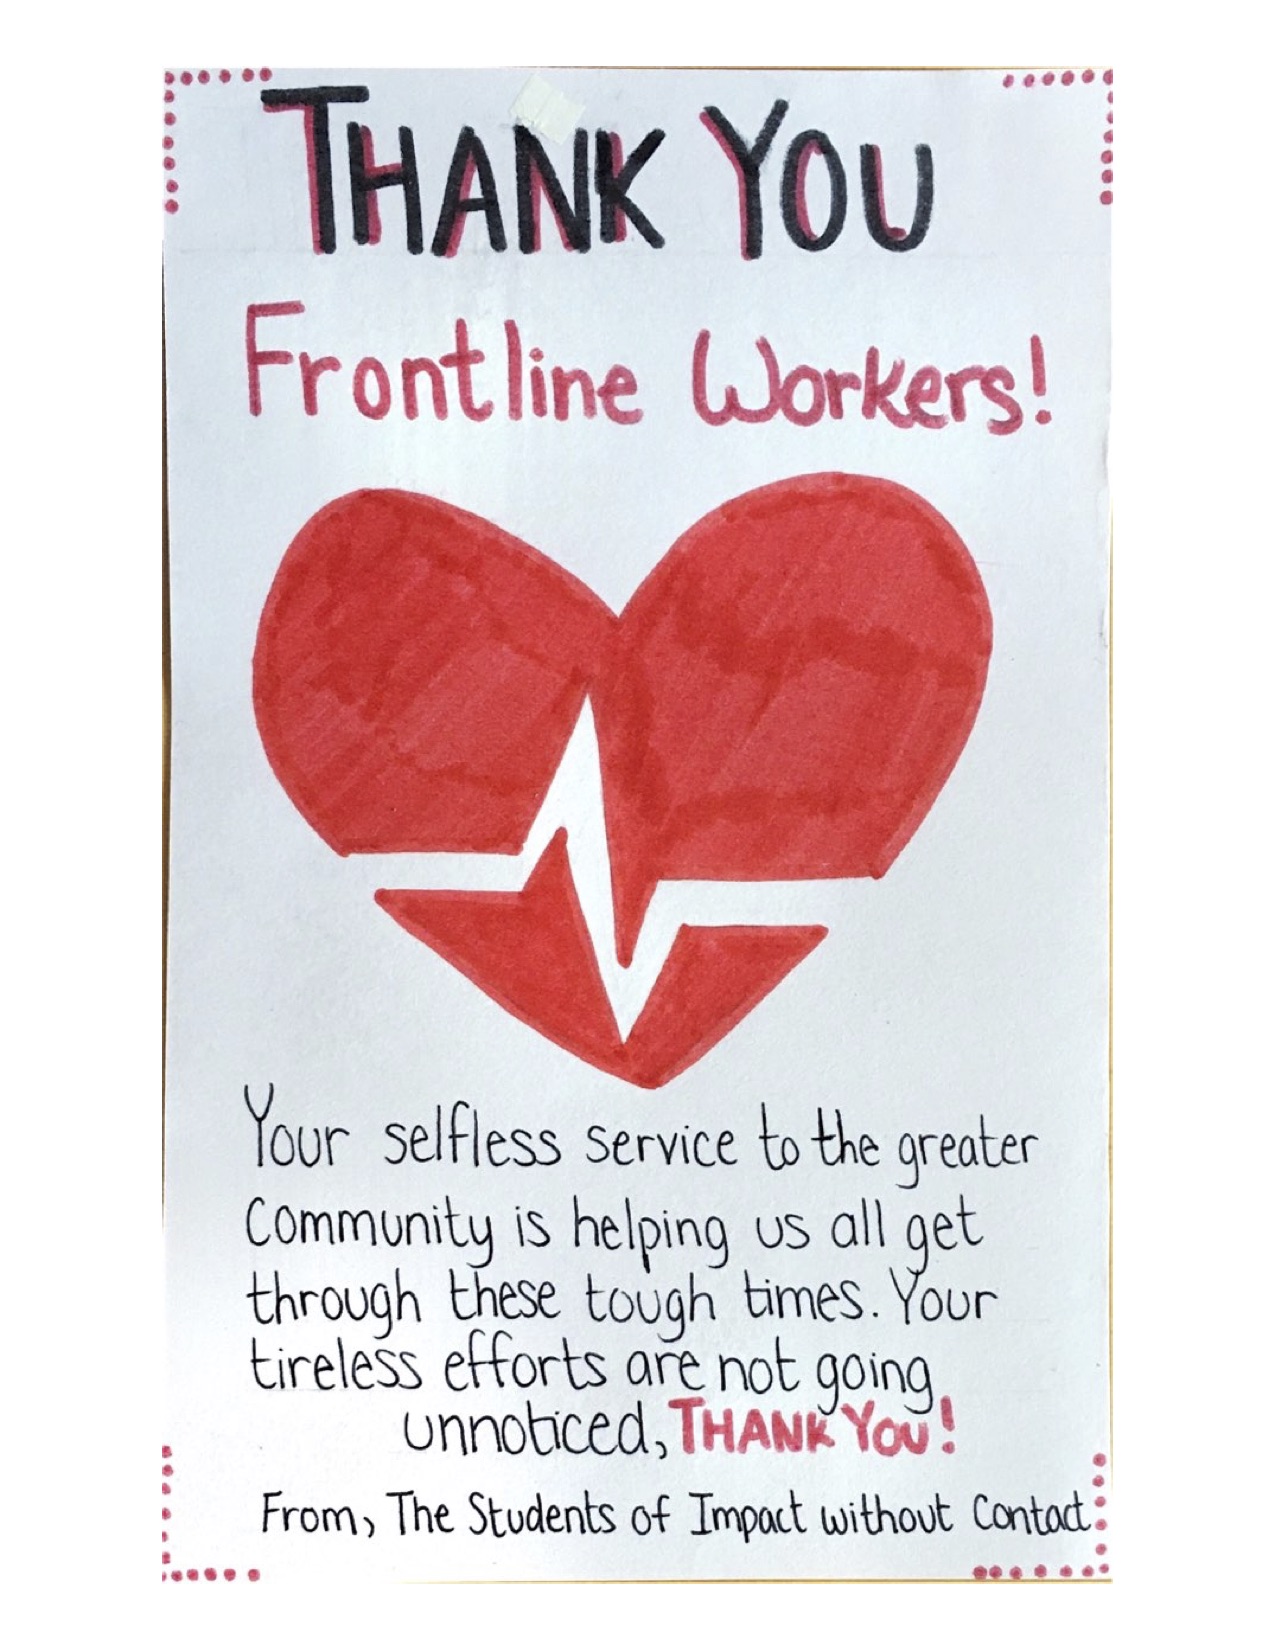 THANK YOU
Frontline Workers!
Your selfless service to the greater
Community is helping us all get
through these tough times. Your
tireless efforts are not going
unnoticed, THANK YOU!
From, The Students of Impact without Contact